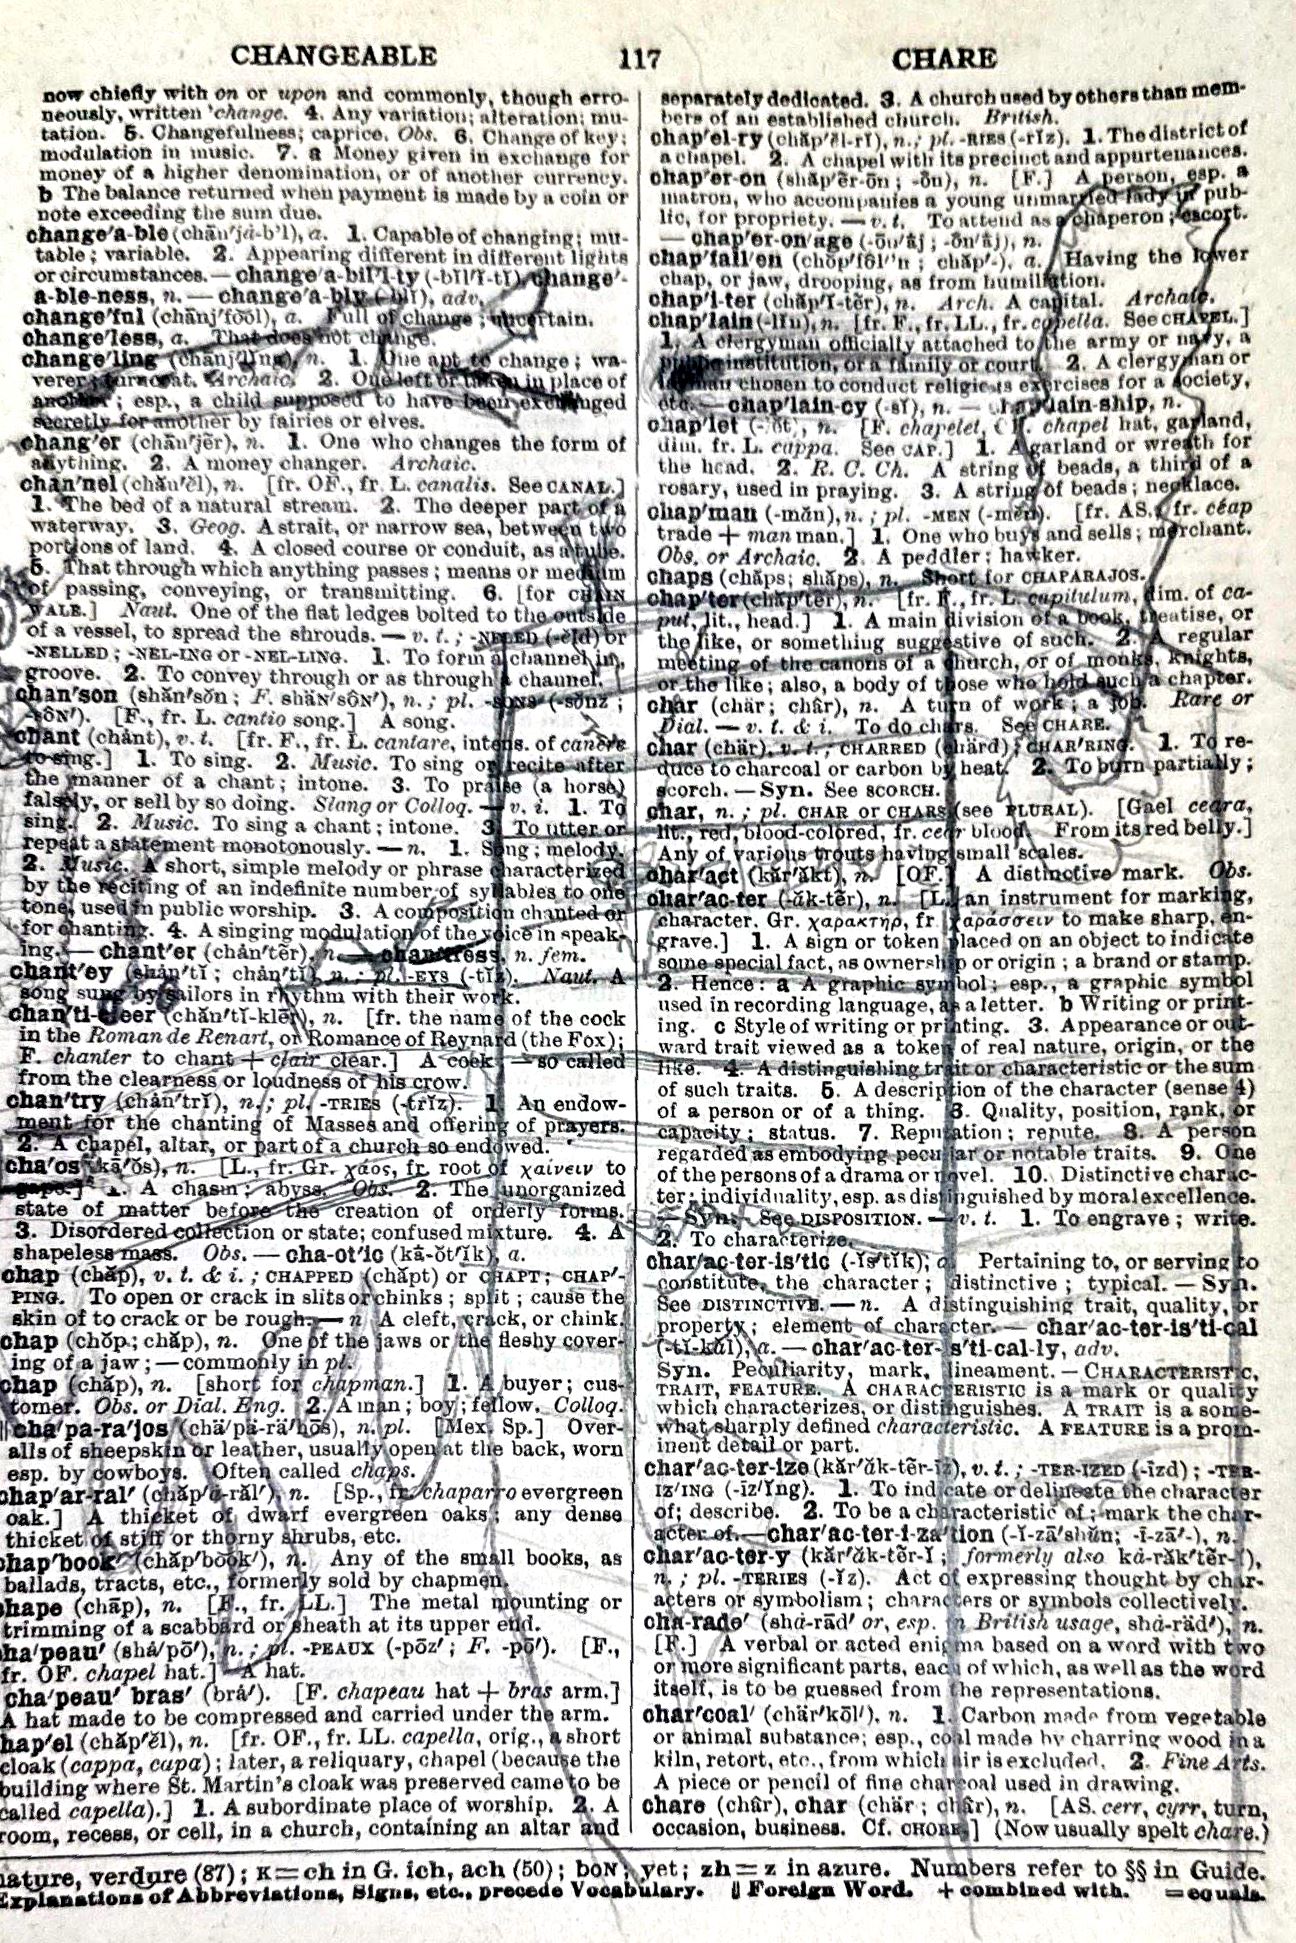 CHANGEABLE 117 CHARE
now chiefly with on or upon and commonly, though erro-
neously, written 'change. 4. Any variation; alteration; mu-
tation. 5. Changefulness; caprice. Obs. 6. Change of key;
modulation in music. 7. a Money given in exchange for
money of a higher denomination, or of another currency.
b The balance returned when payment is made by a coin or
note exceeding the sum due.
change'a-ble (chān'jȧ-b'l), a. 1. Capable of changing; mu-
table; variable. 2. Appearing different in different lights
or circumstances. — change'a-bil'i-ty (-bĭl'ĭ-tĭ), change'-
a-ble-ness, n. — change'a-bly (-blĭ), adv.
change'ful (chānj'fo͝ol), a. Full of change; uncertain.
change'less, a. That does not change.
change'ling (chānj'lĭng), n. 1. One apt to change; wa-
verer; turncoat. Archaic. 2. One left or taken in place of
another; esp., a child supposed to have been exchanged
secretly for another by fairies or elves.
chang'er (chān'jẽr), n. 1. One who changes the form of
anything. 2. A money changer. Archaic.
chan'nel (chăn'ĕl), n. [fr. OF., fr. L. canalis. See CANAL.]
1. The bed of a natural stream. 2. The deeper part of a
waterway. 3. Geog. A strait, or narrow sea, between two
portions of land. 4. A closed course or conduit, as a tube.
5. That through which anything passes; means or medium
of passing, conveying, or transmitting. 6. [for CHAIN
WALE.] Naut. One of the flat ledges bolted to the outside
of a vessel, to spread the shrouds. — v. t.; -NELED (-ĕld) or
-NELLED; -NEL-ING OR -NEL-LING. 1. To form a channel in,
groove. 2. To convey through or as through a channel.
chan'son (shăn'sŏn; F. shäɴ'sôɴ'), n.; pl. -SONS (-sŏnz;
-sôɴ'). [F., fr. L. cantio song.] A song.
chant (chȧnt), v. t. [fr. F., fr. L. cantare, intens. of canere
to sing.] 1. To sing. 2. Music. To sing or recite after
the manner of a chant; intone. 3. To praise (a horse)
falsely, or sell by so doing. Slang or Colloq. — v. i. 1. To
sing. 2. Music. To sing a chant; intone. 3. To utter or
repeat a statement monotonously. — n. 1. Song; melody.
2. Music. A short, simple melody or phrase characterized
by the reciting of an indefinite number of syllables to one
tone, used in public worship. 3. A composition chanted or
for chanting. 4. A singing modulation of the voice in speak-
ing. — chant'er (chȧn'tẽr), n. — chant'ress, n. fem.
chant'ey (shȧn'tĭ; chȧn'tĭ), n.; pl. -EYS (-tĭz). Naut. A
song sung by sailors in rhythm with their work.
chan'ti-cleer (chăn'tĭ-klēr), n. [fr. the name of the cock
in the Roman de Renart, or Romance of Reynard (the Fox);
F. chanter to chant + clair clear.] A cock — so called
from the clearness or loudness of his crow.
chan'try (chȧn'trĭ), n.; pl. -TRIES (-trĭz). 1. An endow-
ment for the chanting of Masses and offering of prayers.
2. A chapel, altar, or part of a church so endowed.
cha'os (kā'ŏs), n. [L., fr. Gr. χάος, fr. root of χαίνειν to
gape.] 1. A chasm; abyss. Obs. 2. The unorganized
state of matter before the creation of orderly forms.
3. Disordered collection or state; confused mixture. 4. A
shapeless mass. Obs. — cha-ot'ic (kȧ-ŏt'ĭk), a.
chap (chăp), v. t. & i.; CHAPPED (chăpt) or CHAPT; CHAP'-
PING. To open or crack in slits or chinks; split; cause the
skin of to crack or be rough. — n. A cleft, crack, or chink.
chap (chŏp; chăp), n. One of the jaws or the fleshy cover-
ing of a jaw; — commonly in pl.
chap (chăp), n. [short for chapman.] 1. A buyer; cus-
tomer. Obs. or Dial. Eng. 2. A man; boy; fellow. Colloq.
‖ cha'pa-ra'jos (chä'pä-rä'hōs), n. pl. [Mex. Sp.] Over-
alls of sheepskin or leather, usually open at the back, worn
esp. by cowboys. Often called chaps.
chap'ar-ral' (chăp'ȧ-răl'), n. [Sp., fr. chaparro evergreen
oak.] A thicket of dwarf evergreen oaks; any dense
thicket of stiff or thorny shrubs, etc.
chap'book' (chăp'bo͝ok'), n. Any of the small books, as
ballads, tracts, etc., formerly sold by chapmen.
chape (chāp), n. [F., fr. LL.] The metal mounting or
trimming of a scabbard or sheath at its upper end.
cha'peau' (shȧ'pō'), n.; pl. -PEAUX (-pōz'; F. -pō'). [F.,
fr. OF. chapel hat.] A hat.
cha'peau' bras' (brȧ'). [F. chapeau hat + bras arm.]
A hat made to be compressed and carried under the arm.
hap'el (chăp'ĕl), n. [fr. OF., fr. LL. capella, orig., a short
cloak (cappa, capa); later, a reliquary, chapel (because the
building where St. Martin's cloak was preserved came to be
called capella).] 1. A subordinate place of worship. 2. A
room, recess, or cell, in a church, containing an altar and
separately dedicated. 3. A church used by others than mem-
bers of an established church. British.
chap'el-ry (chăp'ĕl-rĭ), n.; pl. -RIES (-rĭz). 1. The district of
a chapel. 2. A chapel with its precinct and appurtenances.
chap'er-on (shăp'ẽr-ōn; -ŏn), n. [F.] A person, esp. a
matron, who accompanies a young unmarried lady in pub-
lic, for propriety. — v. t. To attend as a chaperon; escort.
— chap'er-on'age (-ōn'âj; -ŏn'âj), n.
chap'fall'en (chŏp'fôl''n; chăp'-), a. Having the lower
chap, or jaw, drooping, as from humiliation.
chap'i-ter (chăp'ĭ-tẽr), n. Arch. A capital. Archaic.
chap'lain (-lĭn), n. [fr. F., fr. LL., fr. capella. See CHAPEL.]
1. A clergyman officially attached to the army or navy, a
public institution, or a family or court. 2. A clergyman or
layman chosen to conduct religious exercises for a society,
etc. — chap'lain-cy (-sĭ), n. — chap'lain-ship, n.
chap'let (-lĕt), n. [F. chapelet, OF. chapel hat, garland,
dim. fr. L. cappa. See CAP.] 1. A garland or wreath for
the head. 2. R. C. Ch. A string of beads, a third of a
rosary, used in praying. 3. A string of beads; necklace.
chap'man (-măn), n.; pl. -MEN (-mĕn). [fr. AS., fr. céap
trade + man man.] 1. One who buys and sells; merchant.
Obs. or Archaic. 2. A peddler; hawker.
chaps (chăps; shăps), n. Short for CHAPARAJOS.
chap'ter (chăp'tẽr), n. [fr. F., fr. L. capitulum, dim. of ca-
put, lit., head.] 1. A main division of a book, treatise, or
the like, or something suggestive of such. 2. A regular
meeting of the canons of a church, or of monks, knights,
or the like; also, a body of those who hold such a chapter.
char (chär; châr), n. A turn of work; a job. Rare or
Dial. — v. t. & i. To do chars. See CHARE.
char (chär), v. t.; CHARRED (chärd); CHAR'RING. 1. To re-
duce to charcoal or carbon by heat. 2. To burn partially;
scorch. — Syn. See SCORCH.
char, n.; pl. CHAR OR CHARS (see PLURAL). [Gael ceara,
lit., red, blood-colored, fr. cear blood. From its red belly.]
Any of various trouts having small scales.
char'act (kăr'ăkt), n. [OF.] A distinctive mark. Obs.
char'ac-ter (-ăk-tẽr), n. [L. an instrument for marking,
character. Gr. χαρακτήρ, fr. χαράσσειν to make sharp, en-
grave.] 1. A sign or token placed on an object to indicate
some special fact, as ownership or origin; a brand or stamp.
2. Hence: a A graphic symbol; esp., a graphic symbol
used in recording language, as a letter. b Writing or print-
ing. c Style of writing or printing. 3. Appearance or out-
ward trait viewed as a token of real nature, origin, or the
like. 4. A distinguishing trait or characteristic or the sum
of such traits. 5. A description of the character (sense 4)
of a person or of a thing. 6. Quality, position, rank, or
capacity; status. 7. Reputation; repute. 8. A person
regarded as embodying peculiar or notable traits. 9. One
of the persons of a drama or novel. 10. Distinctive charac-
ter; individuality, esp. as distinguished by moral excellence.
— Syn. See DISPOSITION. — v. t. 1. To engrave; write.
2. To characterize.
char'ac-ter-is'tic (-ĭs'tĭk), a. Pertaining to, or serving to
constitute, the character; distinctive; typical. — Syn.
See DISTINCTIVE. — n. A distinguishing trait, quality, or
property; element of character. — char'ac-ter-is'ti-cal
(-tĭ-kăl), a. — char'ac-ter-is'ti-cal-ly, adv.
Syn. Peculiarity, mark, lineament. — CHARACTERISTIC,
TRAIT, FEATURE. A CHARACTERISTIC is a mark or quality
which characterizes, or distinguishes. A TRAIT is a some-
what sharply defined characteristic. A FEATURE is a prom-
inent detail or part.
char'ac-ter-ize (kăr'ăk-tẽr-īz), v. t.; -TER-IZED (-īzd); -TER-
IZ'ING (-īz'ĭng). 1. To indicate or delineate the character
of; describe. 2. To be a characteristic of; mark the char-
acter of. — char'ac-ter-i-za'tion (-ĭ-zā'shŭn; -ī-zā'-), n.
char'ac-ter-y (kăr'ăk-tẽr-ĭ; formerly also kȧ-răk'tẽr-ĭ),
n.; pl. -TERIES (-ĭz). Act of expressing thought by char-
acters or symbolism; characters or symbols collectively.
cha-rade' (shȧ-rād' or, esp. in British usage, shȧ-räd'), n.
[F.] A verbal or acted enigma based on a word with two
or more significant parts, each of which, as well as the word
itself, is to be guessed from the representations.
char'coal' (chär'kōl'), n. 1. Carbon made from vegetable
or animal substance; esp., coal made by charring wood in a
kiln, retort, etc., from which air is excluded. 2. Fine Arts.
A piece or pencil of fine charcoal used in drawing.
chare (châr), char (chär; châr), n. [AS. cerr, cyrr, turn,
occasion, business. Cf. CHORE.] (Now usually spelt chare.)
nature, verdure (87); K=ch in G. ich, ach (50); boN; yet; zh=z in azure. Numbers refer to §§ in Guide.
Explanations of Abbreviations, Signs, etc., precede Vocabulary. ‖ Foreign Word. + combined with. =equals.